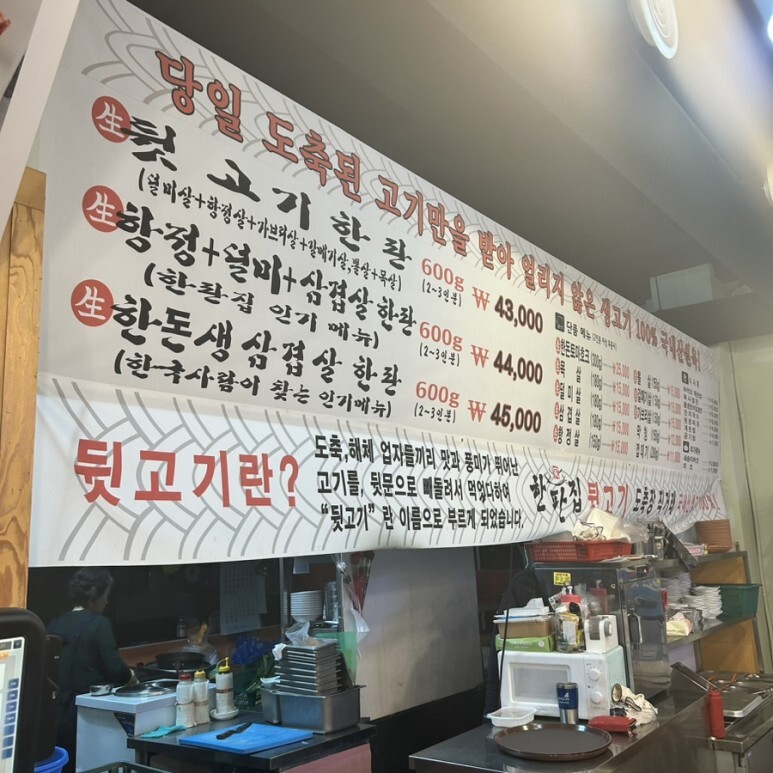 당일 도축된 고기만을 받아 얼리지 않은 생고기 100% 국내산한돈!
生 뒷 고기 한 판
(설미살+항정살+가브리살+갈매기살,뽈살+목살)
600g ₩ 43,000
(2~3인분)
生 항정+설미+삼겹살 한판
(한판집 인기 메뉴)
600g ₩ 44,000
(2~3인분)
生 한돈생삼겹살 한판
(한국사람이 찾는 인기메뉴)
600g ₩ 45,000
(2~3인분)
단품 메뉴
한돈토마호크 (300g) ₩25,000
목 살 (180g) ₩15,000
설 미 살 (180g) ₩15,000
삼 겹 살 (180g) ₩15,000
항 정 살 (150g) ₩15,000
뽈 살 (150g)
갈매기살 (150g)
가브리살 (150g)
뒷고기란?
도축,해체 업자들끼리 맛과 풍미가 뛰어난
고기를, 뒷문으로 빼돌려서 먹었다하여
“뒷고기” 란 이름으로 부르게 되었습니다.
한판집 뒷고기 도축장 직거래